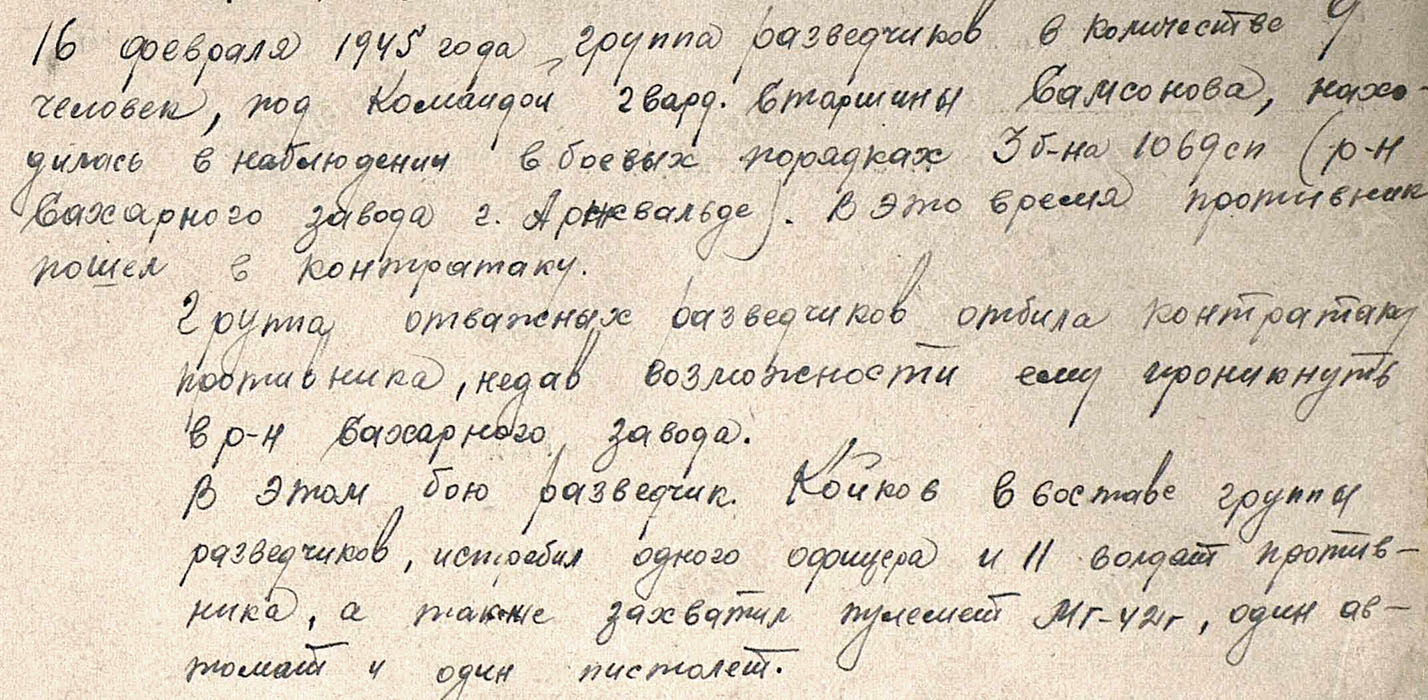 16 февраля 1945 года группа разведчиков в количестве 9
человек, под командой гвард. Старшины Самсонова, нахо-
дилась в наблюдении в боевых порядках 3 б-на 106 гсп (р-н
Сахарного завода г. Арнсвальде). В это время противник
пошел в контратаку.
Группа отважных разведчиков отбила контратаку
противника, недав возможности ему проникнуть
в р-н Сахарного завода.
В этом бою разведчик Койков в составе группы
разведчиков, истребил одного офицера и 11 солдат против-
ника, а также захватил пулемет Мг-42г, один ав-
томат и один пистолет.